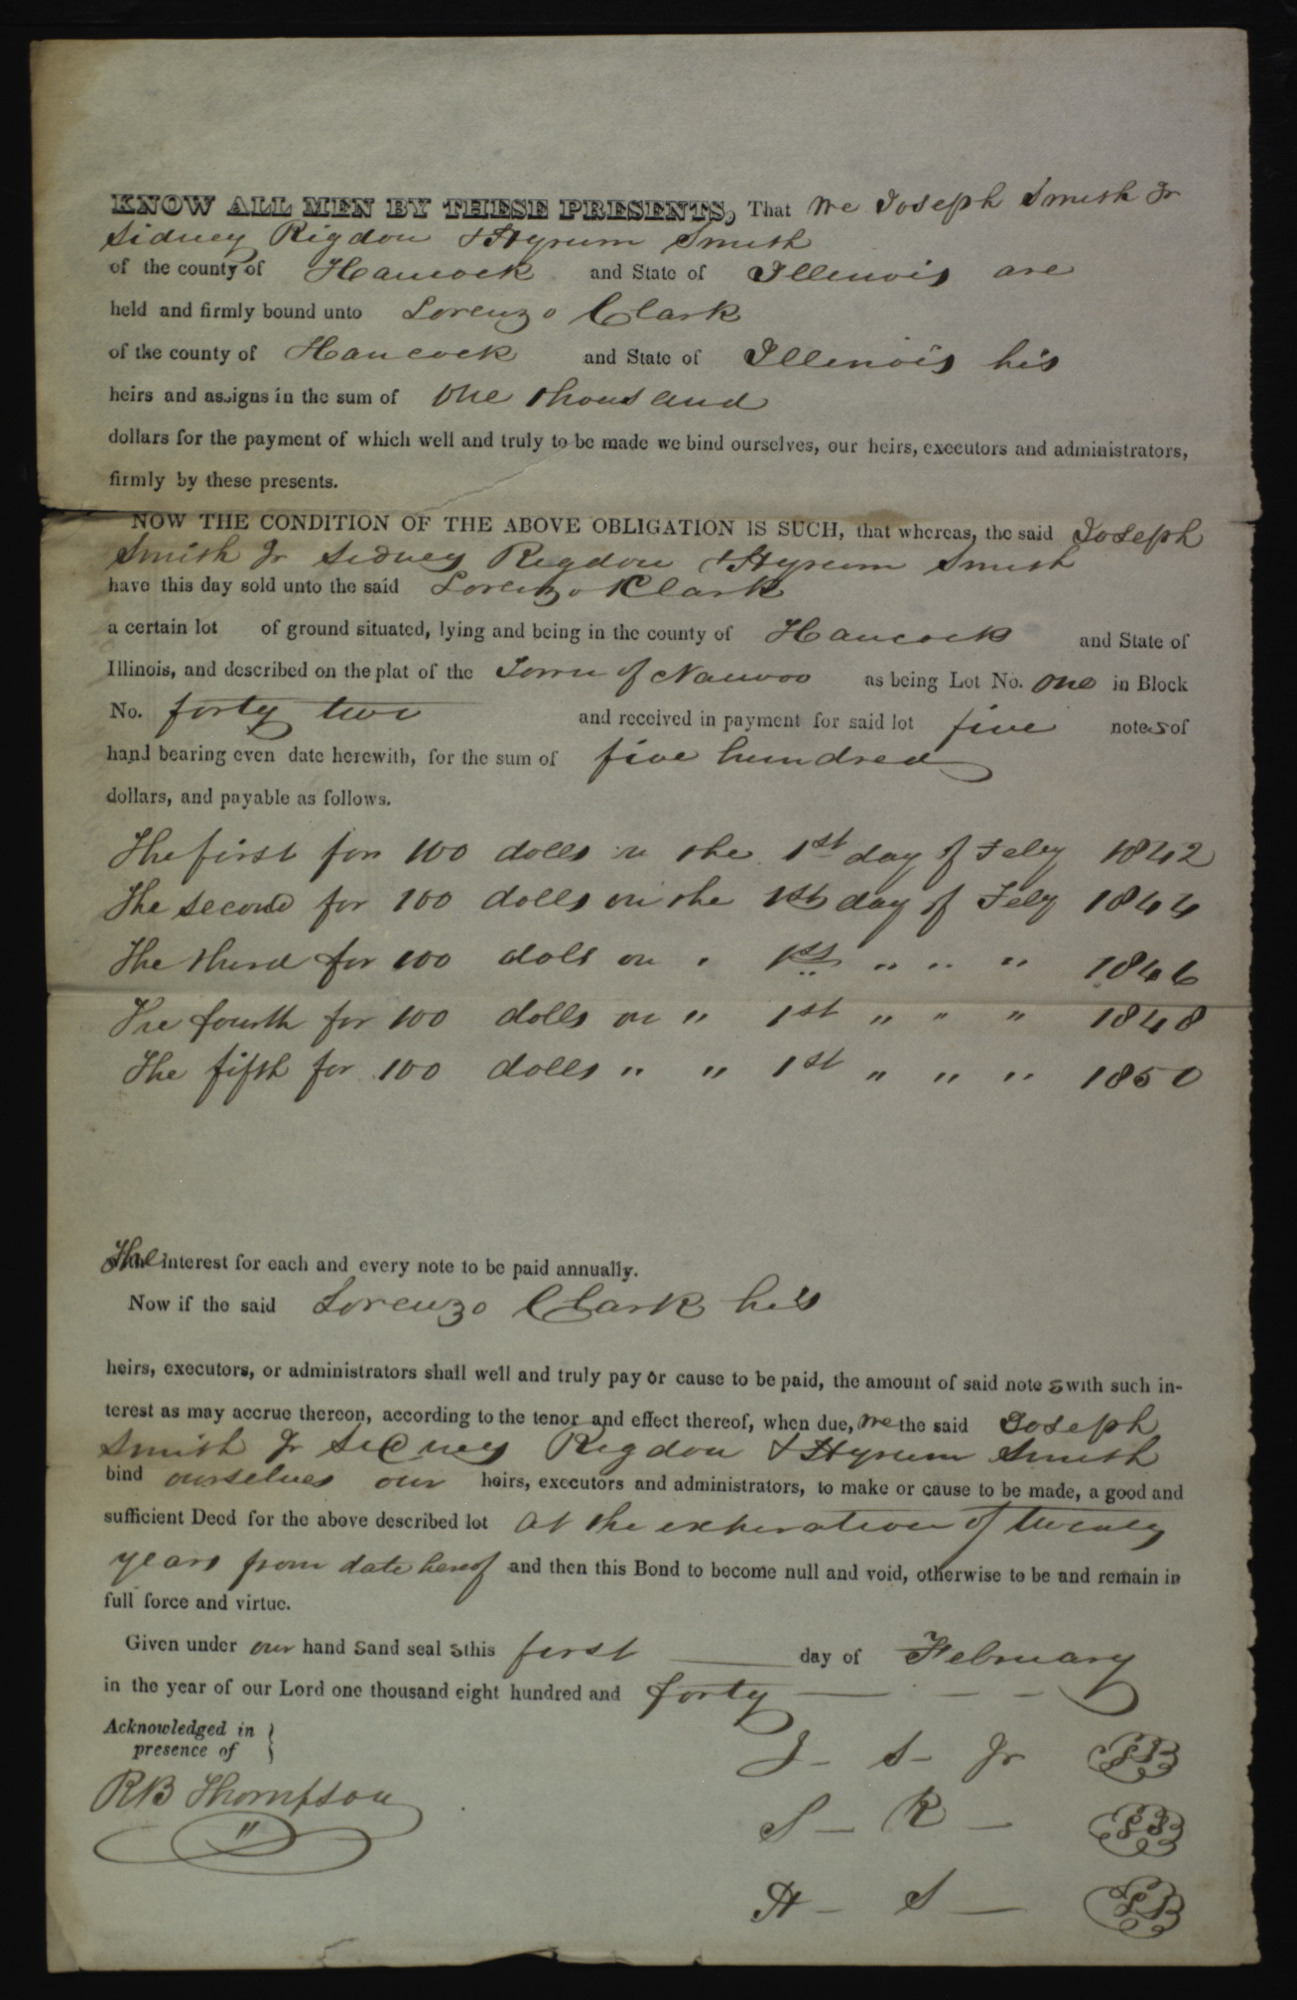 KNOW ALL MEN BY THESE PRESENTS, That We Joseph Smith Jr
Sidney Rigdon & Hyrum Smith
of the county of Hancock and State of Illinois are
held and firmly bound unto Lorenzo Clark
of the county of Hancock and State of Illinois his
heirs and assigns in the sum of One thousand
dollars for the payment of which well and truly to be made we bind ourselves, our heirs, executors and administrators,
firmly by these presents.
NOW THE CONDITION OF THE ABOVE OBLIGATION IS SUCH, that whereas, the said Joseph
Smith Jr Sidney Rigdon & Hyrum Smith
have this day sold unto the said Lorenzo Clark
a certain lot of ground situated, lying and being in the county of Hancock and State of
Illinois, and described on the plat of the Town of Nauvoo as being Lot No. One in Block
No. forty two and received in payment for said lot five notes of
hand bearing even date herewith, for the sum of five hundred
dollars, and payable as follows.
The first for 100 dolls on the 1st day of Feby 1842
The second for 100 dolls on the 1st day of Feby 1844
The third for 100 dolls on " 1st " " " 1846
The fourth for 100 dolls on " 1st " " " 1848
The fifth for 100 dolls " " 1st " " " 1850
The interest for each and every note to be paid annually.
Now if the said Lorenzo Clark his
heirs, executors, or administrators shall well and truly pay or cause to be paid, the amount of said note s with such in-
terest as may accrue thereon, according to the tenor and effect thereof, when due, We the said Joseph
Smith Jr Sidney Rigdon & Hyrum Smith
bind ourselves our heirs, executors and administrators, to make or cause to be made, a good and
sufficient Deed for the above described lot at the experation of twenty
years from date hereof and then this Bond to become null and void, otherwise to be and remain in
full force and virtue.
Given under our hand s and seal s this first day of February
in the year of our Lord one thousand eight hundred and forty
Acknowledged in
presence of
J - S - Jr
RB Thompson
S - R -
H - S -